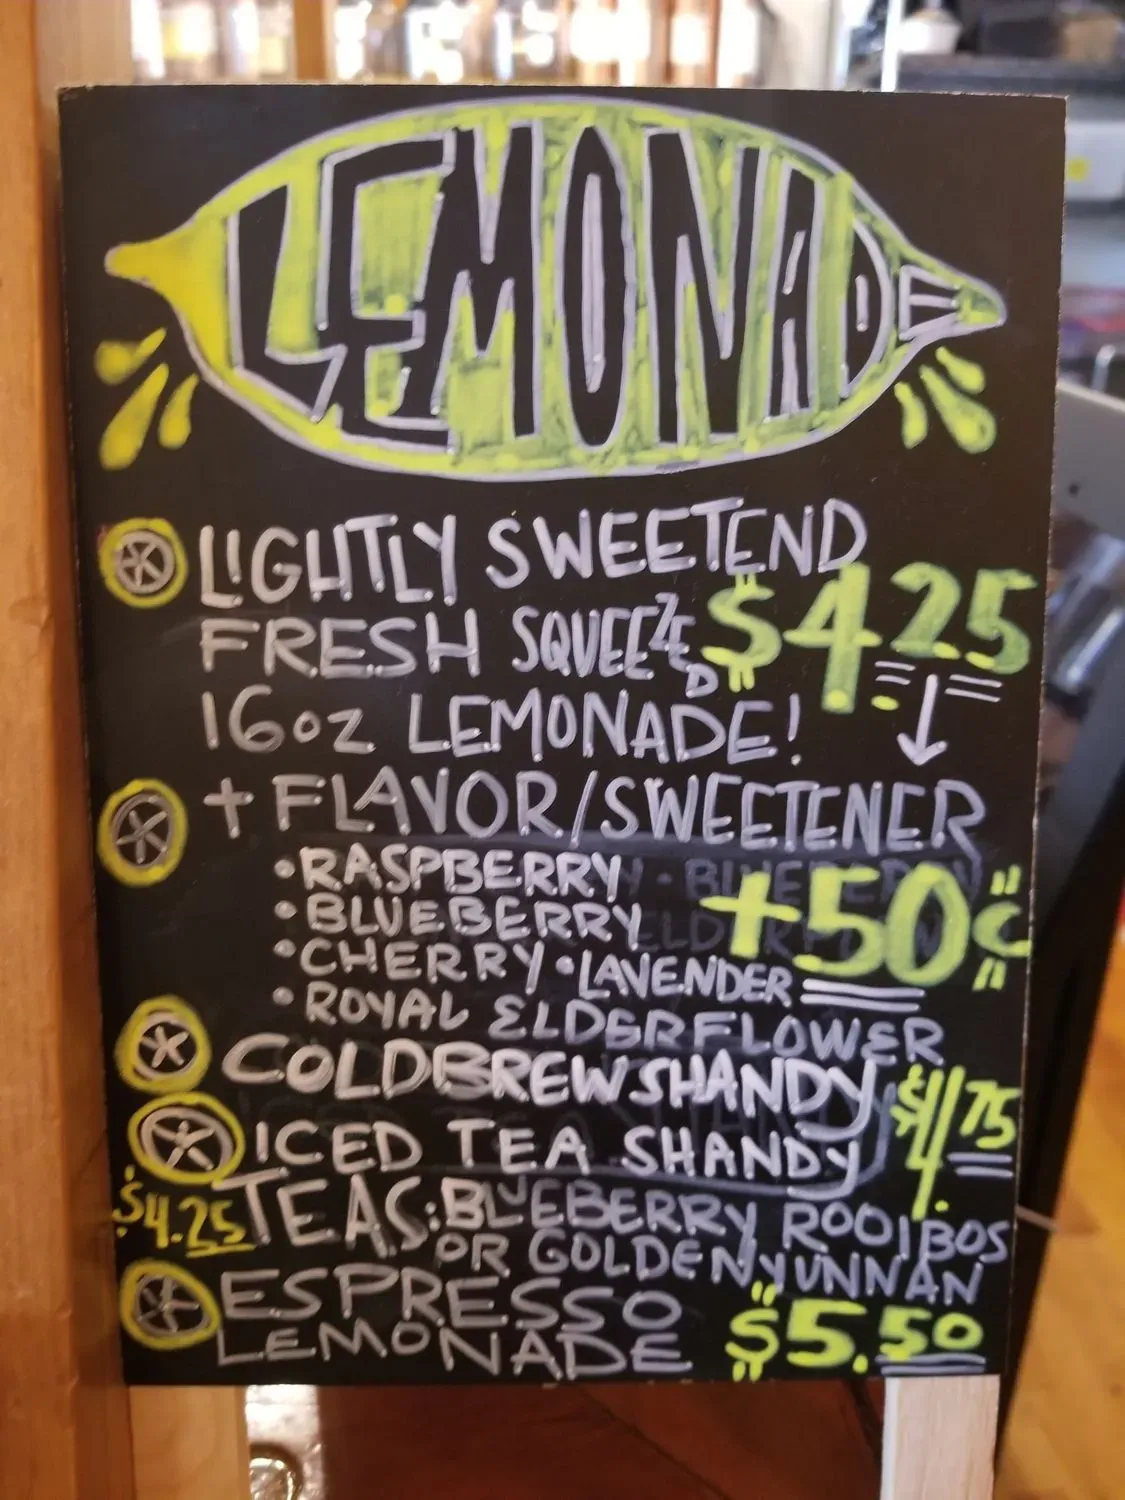 LEMONADE
LIGHTLY SWEETEND
FRESH SQUEEZED $4.25
16oz LEMONADE!
+ FLAVOR/SWEETENER
•RASPBERRY
•BLUEBERRY +50¢
•CHERRY •LAVENDER
•ROYAL ELDERFLOWER
COLDBREW SHANDY $4.75
ICED TEA SHANDY
$4.25 TEAS: BLUEBERRY ROOIBOS
OR GOLDEN YUNNAN
ESPRESSO
LEMONADE $5.50